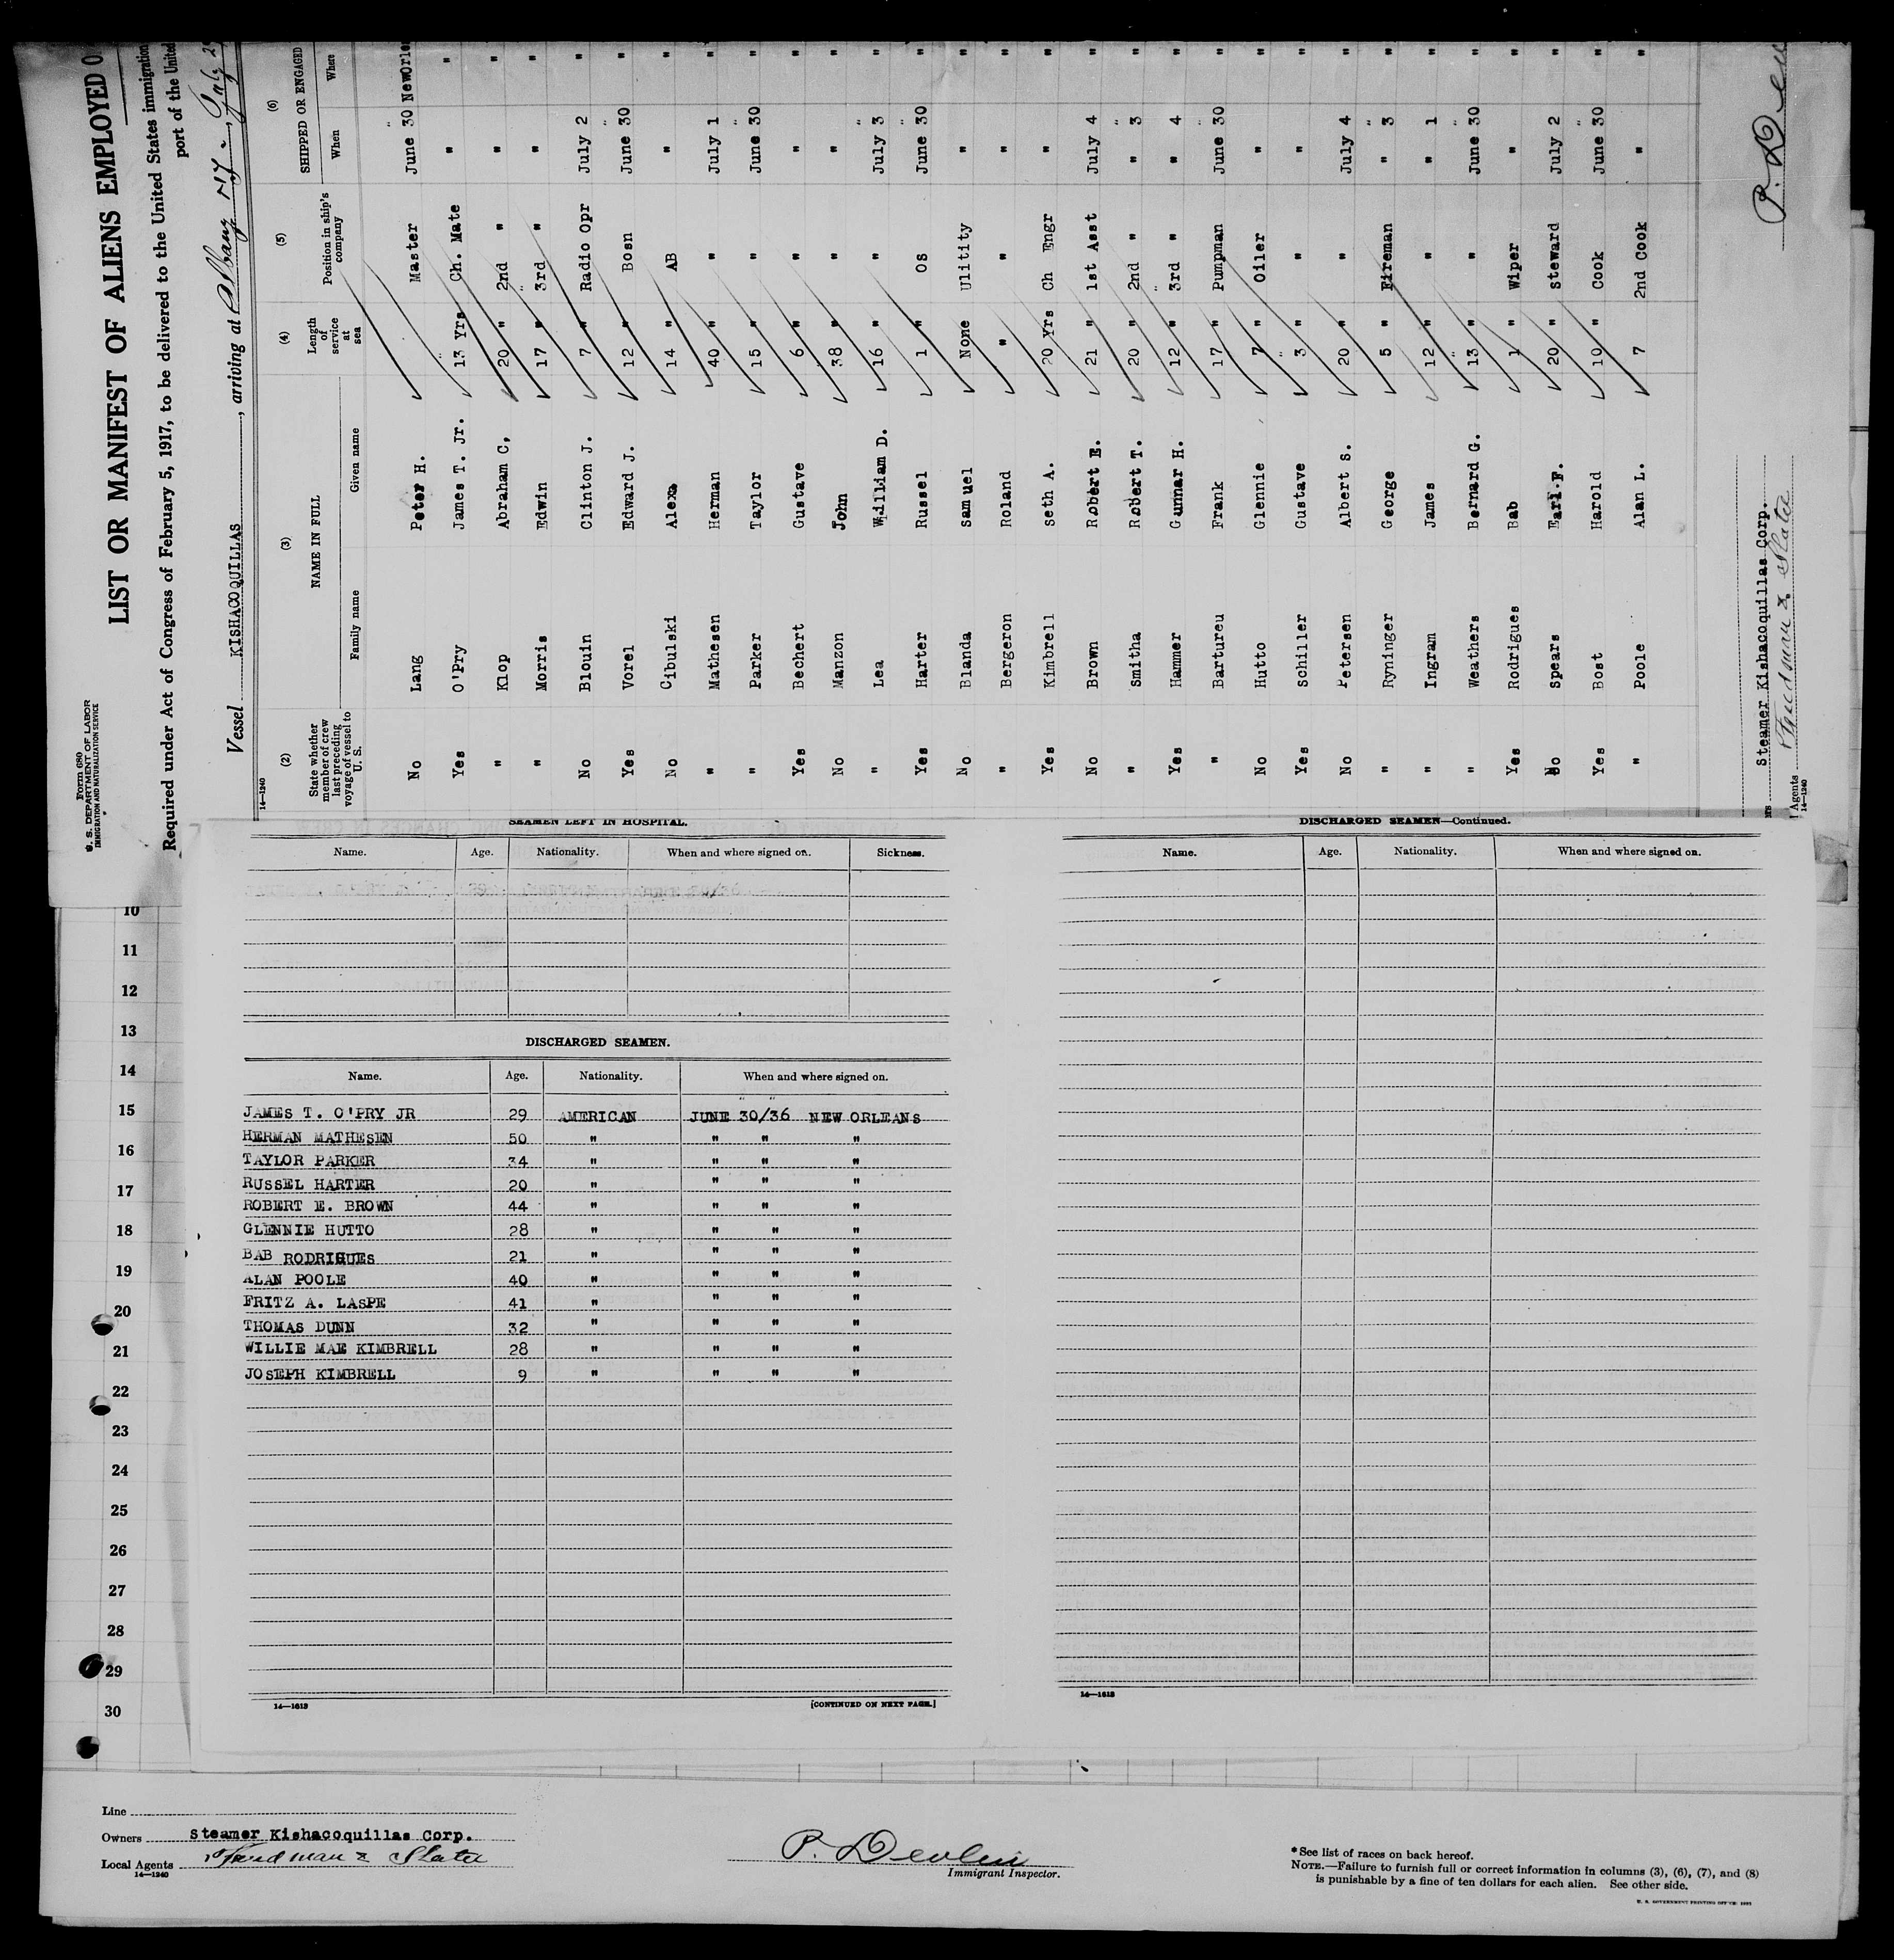 Form 680
U. S. DEPARTMENT OF LABOR
IMMIGRATION AND NATURALIZATION SERVICE
LIST OR MANIFEST OF ALIENS EMPLOYED O
Required under Act of Congress of February 5, 1917, to be delivered to the United States immigration
port of the United
Vessel KISHACOQUILLAS, arriving at Albany N.Y., July 2
14—1240
(2) (3) (4) (5) (6)
State whether member of crew last preceding voyage of vessel to U. S. NAME IN FULL Length of service at sea Position in ship's company SHIPPED OR ENGAGED
Family name Given name When Where
No Lang Peter H. Master June 30 NewOrle
Yes O'Pry James T. Jr. 13 Yrs Ch. Mate " "
" Klop Abraham C, 20 " 2nd " " "
" Morris Edwin 17 " 3rd " " "
No Blouin Clinton J. 7 " Radio Opr July 2 "
Yes Vorel Edward J. 12 " Bosn June 30 "
No Cibulski Alexa 14 " AB " "
" Mathesen Herman 40 " " July 1 "
" Parker Taylor 15 " " June 30 "
Yes Bechert Gustave 6 " " " "
No Manzon John 38 " " " "
" Lea William D. 16 " " July 3 "
Yes Harter Russel 1 " OS June 30 "
No Blanda Samuel None Ulitity " "
" Bergeron Roland " " " "
Yes Kimbrell Seth A. 20 Yrs Ch Engr " "
No Brown Robert E. 21 " 1st Asst July 4 "
" Smitha Robert T. 20 " 2nd " " 3 "
Yes Hammer Gunnar H. 12 " 3rd " " 4 "
" Bartureu Frank 17 " Pumpman June 30 "
No Hutto Glennie 7 " Oiler " "
Yes Schiller Gustave 3 " " " "
No Petersen Albert S. 20 " " July 4 "
" Ryninger George 5 " Fireman " 3 "
" Ingram James 12 " " " 1 "
" Weathers Bernard G. 13 " " June 30 "
Yes Rodrigues Bab 1 " Wiper " "
No Spears Earl.F. 20 " Steward July 2 "
Yes Bost Harold 10 " Cook June 30 "
" Poole Alan L. 7 2nd Cook " "
Steamer Kishacoquillas Corp.
Agents
14—1240
P. Dev
SEAMEN LEFT IN HOSPITAL.
Name. Age. Nationality. When and where signed on. Sickness.
DISCHARGED SEAMEN.
Name. Age. Nationality. When and where signed on.
JAMES T. O'PRY JR 29 AMERICAN JUNE 30/36 NEW ORLEANS
HERMAN MATHESEN 50 " " " "
TAYLOR PARKER 34 " " " "
RUSSEL HARTER 20 " " " "
ROBERT E. BROWN 44 " " " "
GLENNIE HUTTO 28 " " " "
BAB RODRIGUES 21 " " " "
ALAN POOLE 40 " " " "
FRITZ A. LASPE 41 " " " "
THOMAS DUNN 32 " " " "
WILLIE MAE KIMBRELL 28 " " " "
JOSEPH KIMBRELL 9 " " " "
14—1613 [CONTINUED ON NEXT PAGE.]
DISCHARGED SEAMEN—Continued.
Name. Age. Nationality. When and where signed on.
14—1613
10
11
12
13
14
15
16
17
18
19
20
21
22
23
24
25
26
27
28
29
30
Line
Owners Steamer Kishacoquillas Corp.
Local Agents Slater
14—1240
P. Devlin
Immigrant Inspector.
*See list of races on back hereof.
NOTE.—Failure to furnish full or correct information in columns (3), (6), (7), and (8)
is punishable by a fine of ten dollars for each alien. See other side.